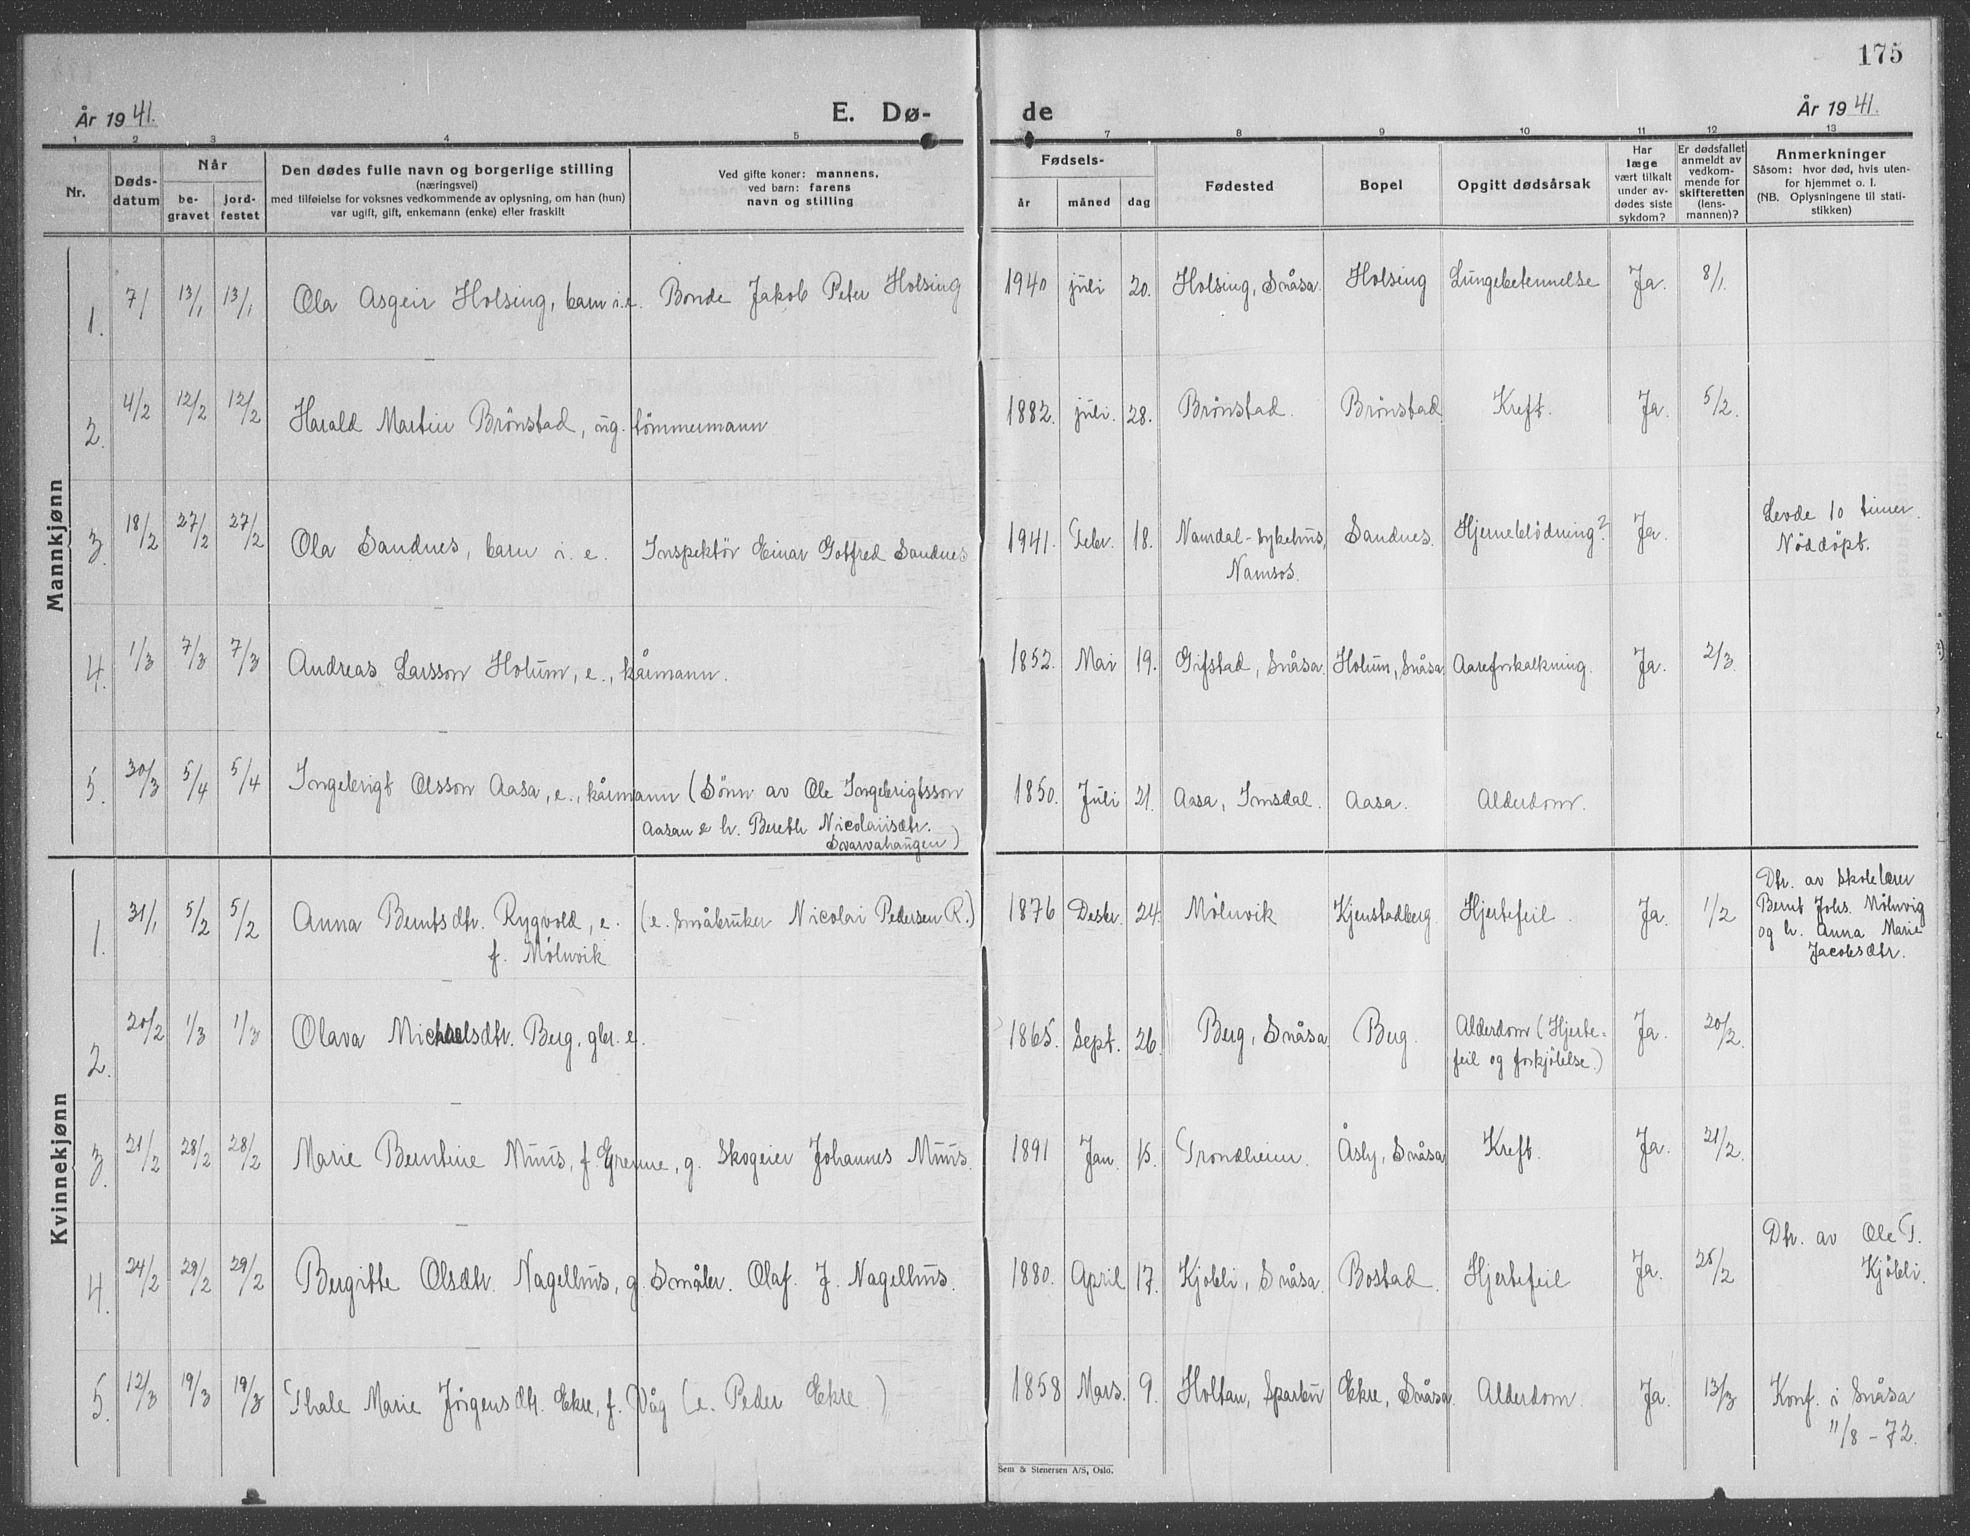 175
År 1941.
E. Dø-
de
År 1941.
1 2 3 4 5 7 8 9 10 11 12 13
Nr.
Døds-
datum
Når
be-
gravet
jord-
festet
Den dødes fulle navn og borgerlige stilling
(næringsvei)
med tilføielse for voksnes vedkommende av oplysning, om han (hun)
var ugift, gift, enkemann (enke) eller fraskilt
Ved gifte koner: mannens,
ved barn: farens
navn og stilling
Fødsels-
år måned dag
Fødested
Bopel
Opgitt dødsårsak
Har
læge
vært tilkalt
under av-
dødes siste
sykdom?
Er dødsfallet
anmeldt av
vedkom-
mende for
skifteretten
(lens-
mannen)?
Anmerkninger
Såsom: hvor død, hvis uten-
for hjemmet o. l.
(NB. Oplysningene til stati-
stikken)
Mannkjønn
1. 7/1 13/1 13/1 Ola Asgeir Holsing, barn i.e. Bonde Jakob Peter Holsing 1940 juli 20. Holsing, Snåsa. Holsing Lungebetennelse Ja. 8/1.
2. 4/2 12/2 12/2 Harald Martin Brønstad, ug. tömmermann 1882. juli. 28. Brønstad. Brønstad Kreft. Ja. 5/2.
3. 18/2 27/2 27/2 Ola Sandnes, barn i. e. Inspektör Einar Gotfred Sandnes 1941. Febr. 18. Namdal-sykehus, Sandnes. Hjerneblödning? Ja. Levde 10 timer.
Namsos. Nöddöpt.
4. 1/3 7/3 7/3 Andreas Larsson Holum, e., kårmann. 1852. Mai 19. Gifstad, Snåsa. Holum, Snåsa. Aareforkalkning. Ja. 2/3.
5. 30/3 5/4 5/4 Ingebrigt Olsson Aasa, e., kårmann (Sönn av Ole Ingebrigtsson 1850. Juli 21. Aasa, Imsdal. Aasa. Alderdom.
Aasan & h. Bereth Nicolaiisdtr.
Svarvahaugen)
Kvinnekjønn
1. 31/1 5/2 5/2 Anna Berntsdtr. Rygvold, e. (e. småbruker Nicolai Pedersen R.) 1876 Desbr. 24. Mølnvik Kjenstadberg. Hjertefeil. Ja. 1/2
f. Mølnvik
Dtr. av Skolelærer
Bernt Johs. Mølnvig
og h. Anna Marie
Jacobsdtr.
2. 20/2 1/3 1/3 Olava Michaelsdtr. Berg, gbr. e. 1865. Sept. 26. Berg, Snåsa. Berg. Alderdom (Hjerte- Ja. 20/2.
feil og forkjölelse.)
3. 21/2 28/2 28/2 Marie Berntine Muus, f. Grenne, g. Skogeier Johannes Muus. 1891 Jan. 15. Trondheim. Åsly, Snåsa Kreft. Ja. 21/2.
4. 24/2 29/2 29/2 Bergitte Olsdtr. Nagelhus, g. Småbr. Olaf J. Nagelhus. 1880. April 17. Kjöbli, Snåsa. Bostad. Hjertefeil Ja. 25/2
Dtr. av Ole T.
Kjöbli.
5. 12/3 19/3 19/3 Thale Marie Jørgensdtr. Ekre, f. Våg (e. Peder Ekre.) 1858 Mars. 9. Holtan, Sparbu Ekre, Snåsa. Alderdom. Ja. 13/3 Konf. i Snåsa
11/8 - 72.
Sem & Stenersen A/S, Oslo.